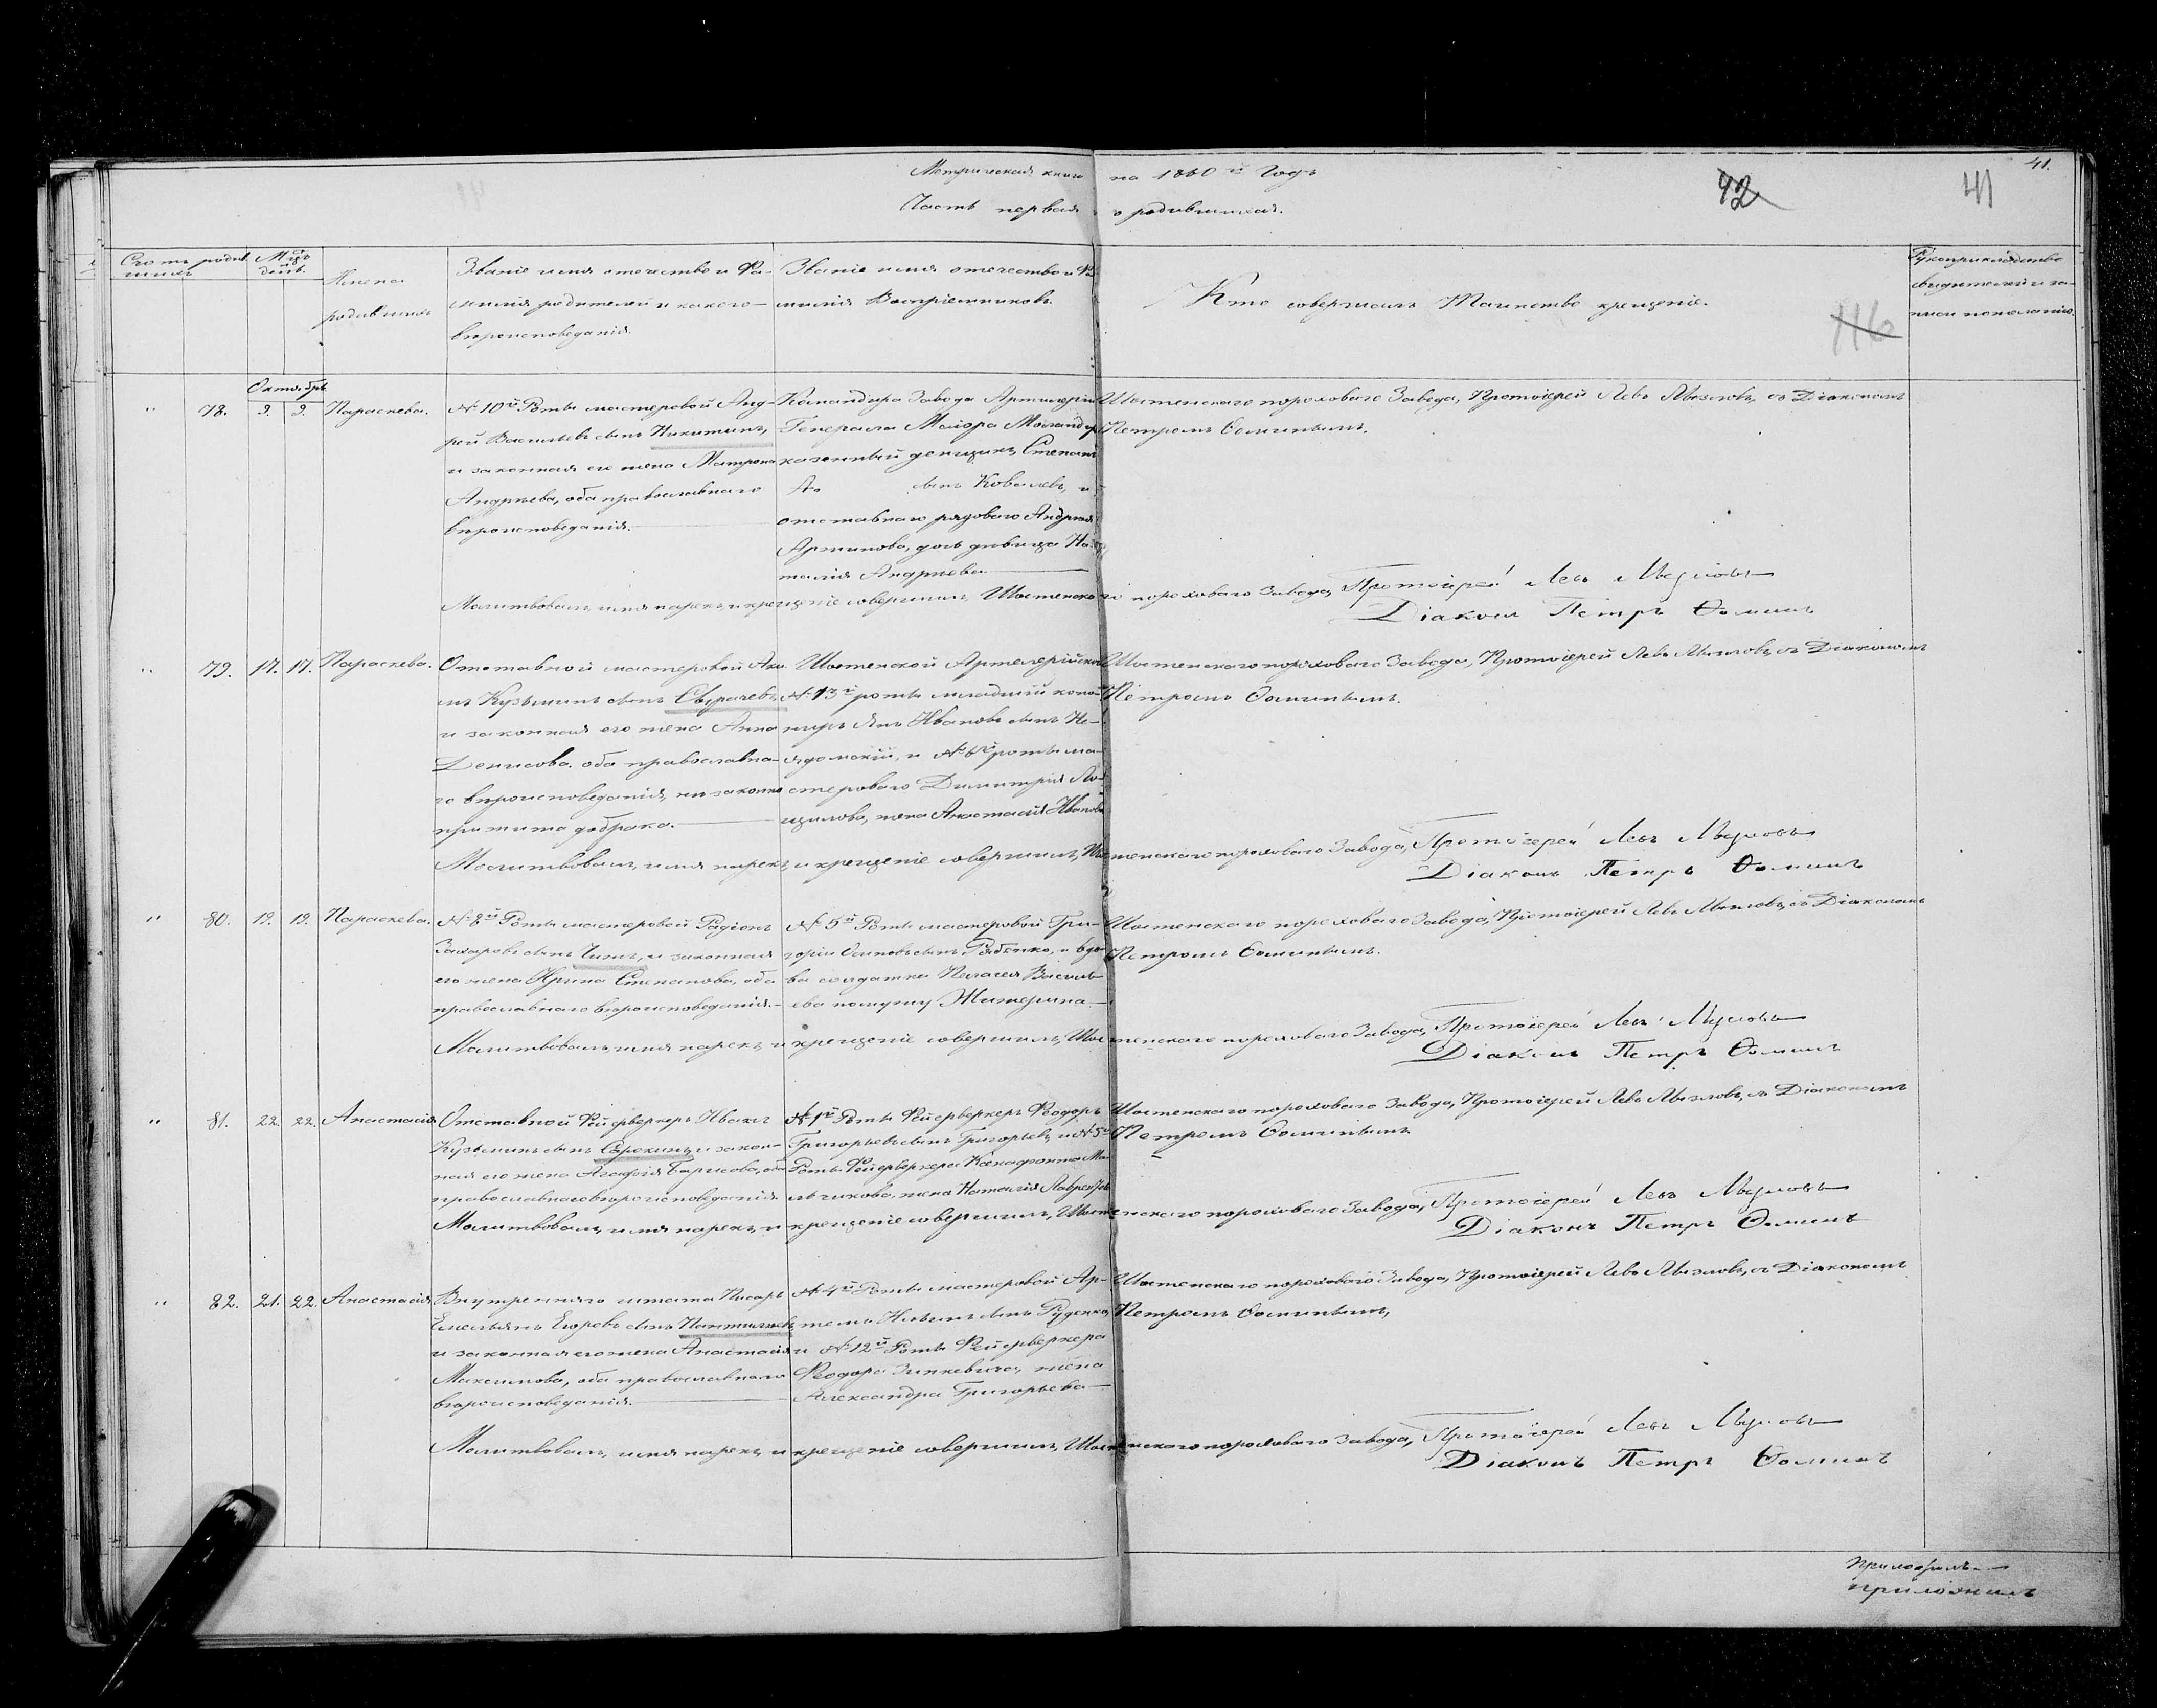 Метрическая книга на 1860й Годъ
41.
42
41
Часть первая о родившихся.
Счетъ родив
шихъ
Мѣц
день.
Имена
родившихъ
Званіе имя отечество и Фа-
милія родителей и какого
вѣроисповеданія.
Званіе имя отечество и Фа
милія Воспріемниковъ.
Кто совершалъ Таинство крещеніе.
116
Рукоприкладство
свидетелей и за-
писи по желанію.
Октябрь
" 78. 9. 9. Параскева.
№ 10й Роты мастеровой Анд-
рей Васильевъ сынъ Никитинъ,
и законная его жена Матрона
Андреева, оба православнаго
вѣроисповеданія.
Командира Завода Артиллеріи
Генерала Маіора
казенный денщикъ Степанъ
сынъ Ковалевъ, и
отставнаго рядоваго Андрея
дочь девица На
талія Андреева
Шостенскаго пороховаго Завода, Протоіерей Левъ Мызловъ, съ Діакономъ
Петромъ Ѳоминымъ.
Молитвовалъ, имя нарекъ и крещеніе совершилъ, Шостенскаго пороховаго Завода, Протоіерей Левъ Мызловъ
Діаконъ Петръ Ѳоминъ
" 79. 17. 17. Параскева.
Отставной мастеровой Аки
мъ Кузьминъ сынъ
и законная его жена Анна
Денисова. оба православна-
го вѣроисповеданія,
прижита до брака.
Шостенской Артелерійской
№ 13й роты младшій кано
ниръ Янъ Ивановъ сынъ
и № 6й роты ма-
стероваго Димитрія
жена Анастасія Иванова
Шостенскаго пороховаго Завода, Протоіерей Левъ Мызловъ, съ Діакономъ
Петромъ Ѳоминымъ.
Молитвовалъ, имя нарекъ, и крещеніе совершилъ, Шостенскаго пороховаго Завода, Протоіерей Левъ Мызловъ
Діаконъ Петръ Ѳоминъ
" 80. 19. 19. Параскева.
№ 8й Роты мастеровой Радіонъ
Захаровъ сынъ и законная
его жена Ирина Степанова, оба
православнаго вѣроисповеданія.
№ 5й Роты мастеровой Гри-
горій Осиповъ сынъ Рябенко, и вдо-
ва солдатка Пелагея Василь
ева по мужу
Шостенскаго пороховаго Завода, Протоіерей Левъ Мызловъ, съ Діакономъ
Петромъ Ѳоминымъ.
Молитвовалъ, имя нарекъ, и крещеніе совершилъ, Шостенскаго пороховаго Завода, Протоіерей Левъ Мызловъ
Діаконъ Петръ Ѳоминъ
" 81. 22. 22. Анастасія
Отставной Фейерверкеръ Иванъ
Кузьминъ сынъ Сорокинъ, и закон-
ная его жена Агафія Борисова, оба
православнаго вѣроисповеданія
№ 1й Роты Фейерверкеръ Феодоръ
Григорьевъ сынъ Григорьевъ, и № 5й
Роты Фейерверкера Ксенофонта Ма
льчикова, жена Наталія Лаврентьева
Шостенскаго пороховаго Завода, Протоіерей Левъ Мызловъ, съ Діакономъ
Петромъ Ѳоминымъ.
Молитвовалъ, имя нарекъ, и крещеніе совершилъ, Шостенскаго пороховаго Завода, Протоіерей Левъ Мызловъ
Діаконъ Петръ Ѳоминъ
" 82. 21. 22. Анастасія
Внутренняго штата Писарь
Емельянъ Егоровъ сынъ
и законная его жена Анастасія
Максимова, оба православнаго
вѣроисповеданія.
№ 4й Роты мастеровой Ар-
темъ Ильинъ сынъ Руденко,
и № 12й Роты Фейерверкера
Феодора Зинкевича, жена
Александра Григорьева
Шостенскаго пороховаго Завода, Протоіерей Левъ Мызловъ, съ Діакономъ
Петромъ Ѳоминымъ,
Молитвовалъ, имя нарекъ, и крещеніе совершилъ, Шостенскаго пороховаго Завода, Протоіерей Левъ Мызловъ
Діаконъ Петръ Ѳоминъ
приложилъ